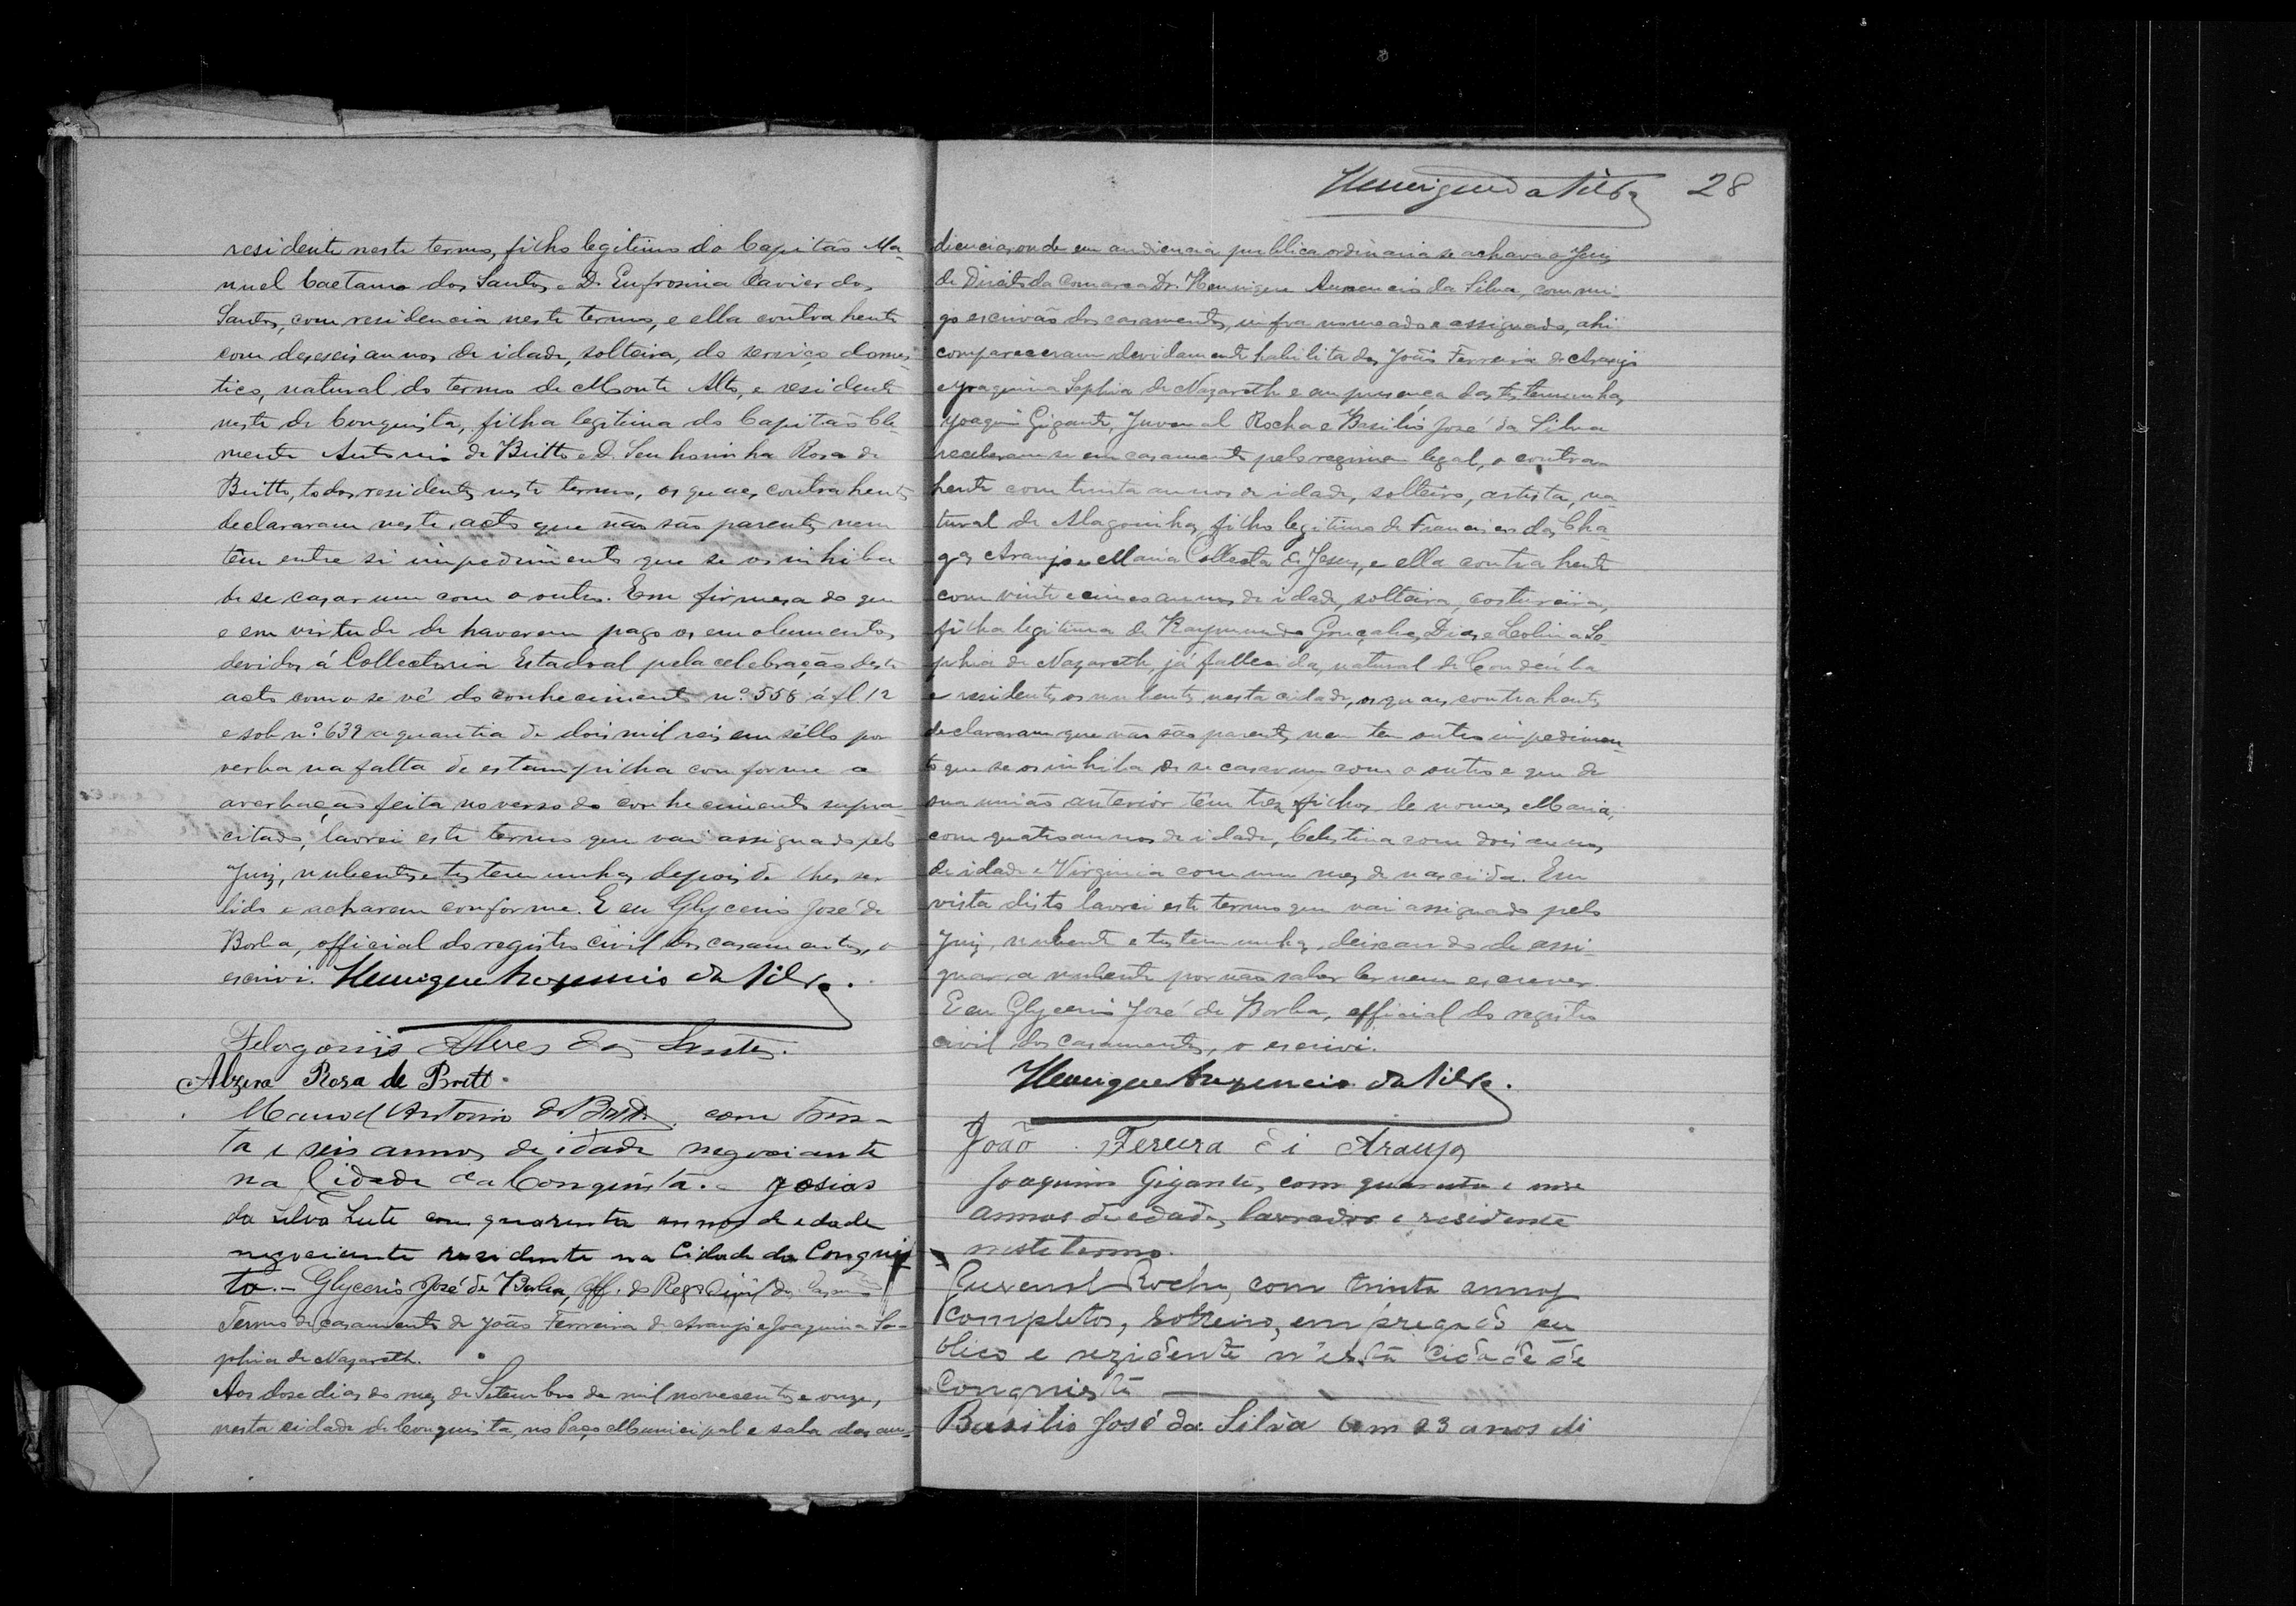 residente neste termo, filho legitimo do Capitão Ma-
nuel Caetano dos Santos e D. Eufrosina Xavier dos
Santos, com residencia neste termo, e ella contrahente
com deseseis annos de idade, solteira, do serviço domes-
tico, natural do termo de Monte Alto, e residente
neste de Conquista, filha legitima do Capitão Cle-
mente Antonio de Britto e D. Senhorinha Rosa de
Britto, todos residentes neste termo, os quaes contrahentes
declararam neste acto que não são parentes nem
têm entre si impedimento que se os inhiba
de se casar um com o outro. Em firmesa do que
e em virtude de haverem pago os emolumentos
devidos á Collectoria Estadoal pela celebração deste
acto como se vê do conhecimento nº. 558 á fl. 12
e sob nº. 639 a quantia de dois mil reis em sello por
verba na falta de estampilha conforme a
averbação feita no verso do conhecimento supra-
citado, lavrei este termo que vai assignado pelo
Juiz, nubentes e testemunhas depois de lhes ser
lido e acharem conforme. E eu Glycerio José de
Borba, official do registro civil dos casamentos, o
escrevi. Henrique Auxencio da Silva.
Alves dos Santos.
Alzira Rosa de Britto.
Manoel Antonio de Britto, com trin-
ta e seis annos de idade negociante
na Cidade da Conquista. - Josias
da Silva Leite com quarenta annos de edade
negociante residente na Cidade da Conquis
ta. - Glycerio José de Borba, off. do Regº Civil dos
Termo de casamento de João Ferreira de Araujo e Joaquina So-
phia de Nazareth.
Aos dose dias do mez de Setembro de mil novecentos e onze,
nesta cidade de Conquista, no Paço Municipal e sala das au-
Henrique da Silva 28
diencias, onde em audiencia publica ordinaria se achava o Juiz
de Direito da Comarca Dr. Henrique Auxencio da Silva, commi-
go escrivão dos casamentos, infra nomeado e assignado, ahi
compareceram devidamente habilitados João Ferreira de Araujo
e Joaquina Sophia de Nazareth e em presença das testemunhas
Joaquim Gigante, Juvenal Rocha e Basilio José da Silva
receberam-se em casamento pelo regimen legal, o contra-
hente com trinta annos de idade, solteiro, artista, na-
tural de Alagoinhas, filho legitimo de Francisco das Cha-
gas Araujo e Maria Collecta de Jesus, e ella contrahente
com vinte e cinco annos de idade, solteira, costureira,
filha legitima de Raymundo Gonçalves Dias e Leolina So-
phia de Nazareth, já fallecida, natural de Condeúba
e residentes os nubentes nesta cidade, os quaes contrahentes
declararam que não são parentes, nem tem outro impedimen-
to que se os inhiba de se casar um com o outro e que de
sua união anterior têm tres filhos de nomes Maria,
com quatro annos de idade, Celestina com dois annos
de idade e Virginia com um mez de nascida. Em
vista disto lavrei este termo que vai assignado pelo
Juiz, nubente e testemunhas, deixando de assi-
gnar a nubente por não saber ler nem escrever.
E eu Glycerio José de Borba, official do registro
civil dos casamentos, o escrivi.
Henrique Auxencio da Silva.
João Fereira di Araujo
Joaquim Gigante, com quarenta e nove
annos de edade, lavrador e residente
neste termo.
Juvenal Rocha, com trinta annos
completos, solteiro, empregado pu
blico e rezidente n'esta cidade de
Conquista
Basilio José da Silva com 23 anos di